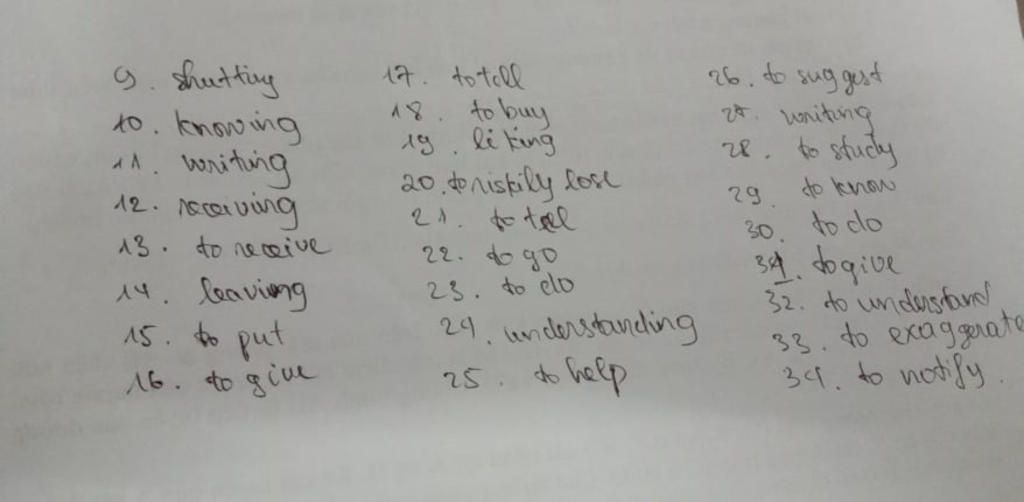 9. shutting
10. knowing
11. writing
12. receiving
13. to receive
14. leaving
15. to put
16. to give
17. to tell
18. to buy
19. liking
20. to riskily lose
21. to tell
22. to go
23. to do
24. understanding
25. to help
26. to suggest
27. writing
28. to study
29. to know
30. to do
31. to give
32. to understand
33. to exaggerate
34. to notify.